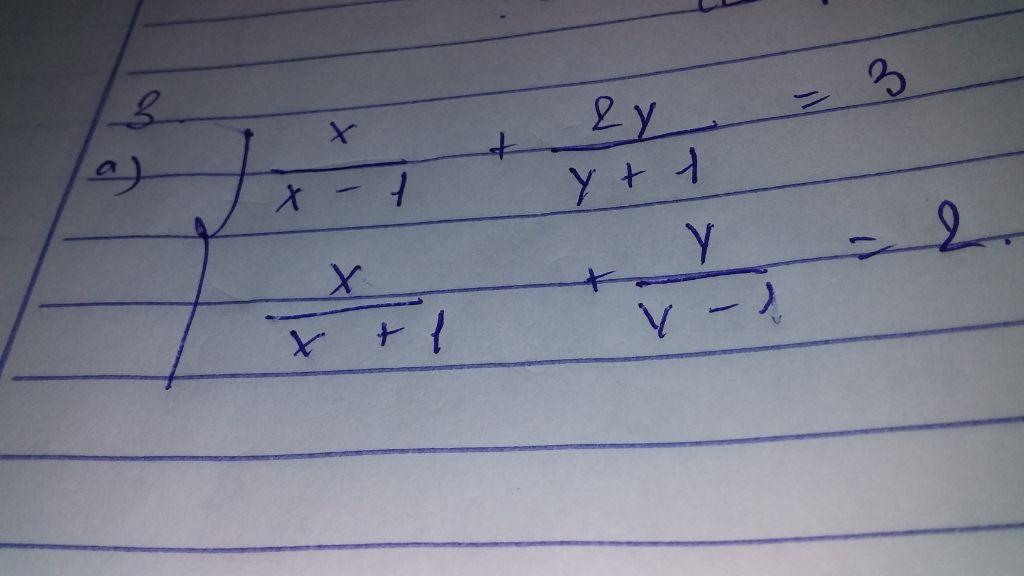 3.
a) { x/(x - 1) + 2y/(y + 1) = 3
x/(x + 1) + y/(y - 1) = 2.